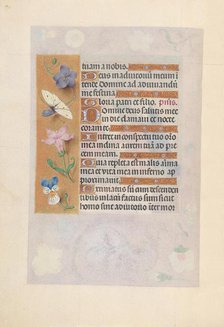 tuam a nobis.
Deus in adiutorium meum i
tende Domine ad adiuvandu
me festina
Gloria patri et filio.
Domine deus salutis mee
in die clamavi et nocte
coram te
Intret in conspectu tuo oro
mea inclina aurem tuam ad pr
cem meam
Quia repleta est malis alma
mea et vita mea in inferno ap
propinquavit
Estimatus sum cum descenden
tibus in lacu factus sum sicut
homo sine adiutorio inter mor